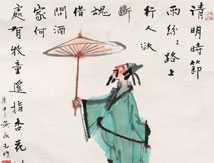 清明時節
雨紛々路上
行人欲
斷
魂
借
問酒
家何
處有牧童遙指杏花